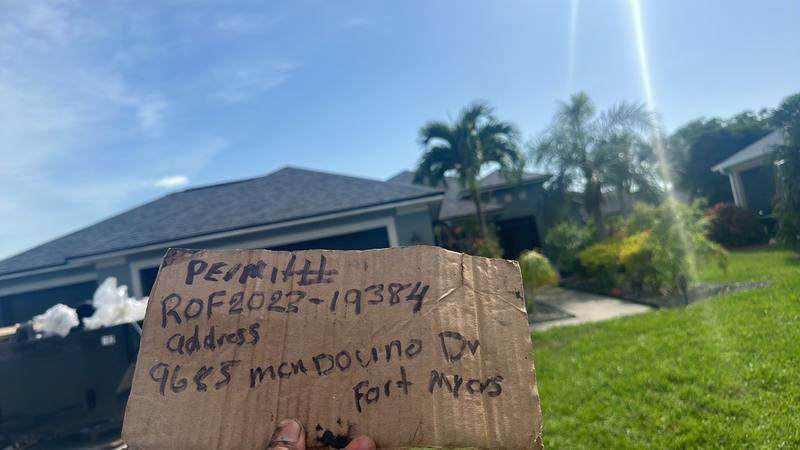 PERMIT#
ROF2023-19384
address
9685 mENDOUNO Dr
Fort Myers